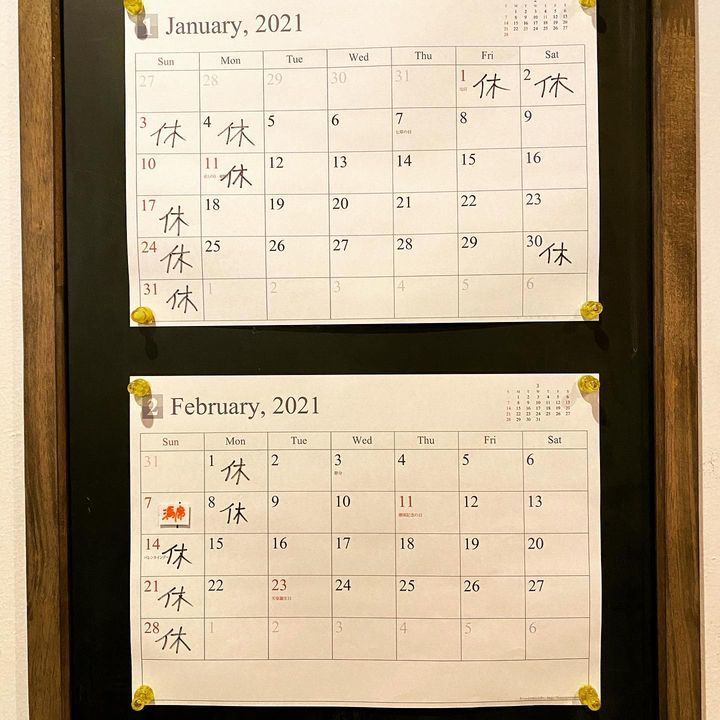 1 January, 2021
Sun Mon Tue Wed Thu Fri Sat
27 28 29 30 31 1 休 2 休
元日
3 休 4 休 5 6 7 8 9
七草の日
10 11 休 12 13 14 15 16
17 休 18 19 20 21 22 23
24 休 25 26 27 28 29 30 休
31 休 1 2 3 4 5 6
2 February, 2021
3
Sun Mon Tue Wed Thu Fri Sat
31 1 休 2 3 4 5 6
節分
7 満席 8 休 9 10 11 12 13
建国記念の日
14 休 15 16 17 18 19 20
バレンタインデー
21 休 22 23 24 25 26 27
天皇誕生日
28 休 1 2 3 4 5 6